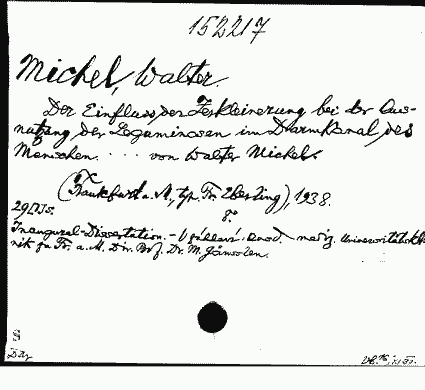 152217
Michel, Walter.
Der Einfluss der Zerkleinerung bei der Aus-
nutzung der Leguminosen im Darmkanal des
Menschen. ... von Walter Michel.
(Frankfurt a. M., typ. Fr. Uberting), 1938.
8°
29 [2] s.
Inaugural-Dissertation. - mediz. Universitätskli-
nik zu Fr. a. M. Dir. Prof. Dr. M.
S